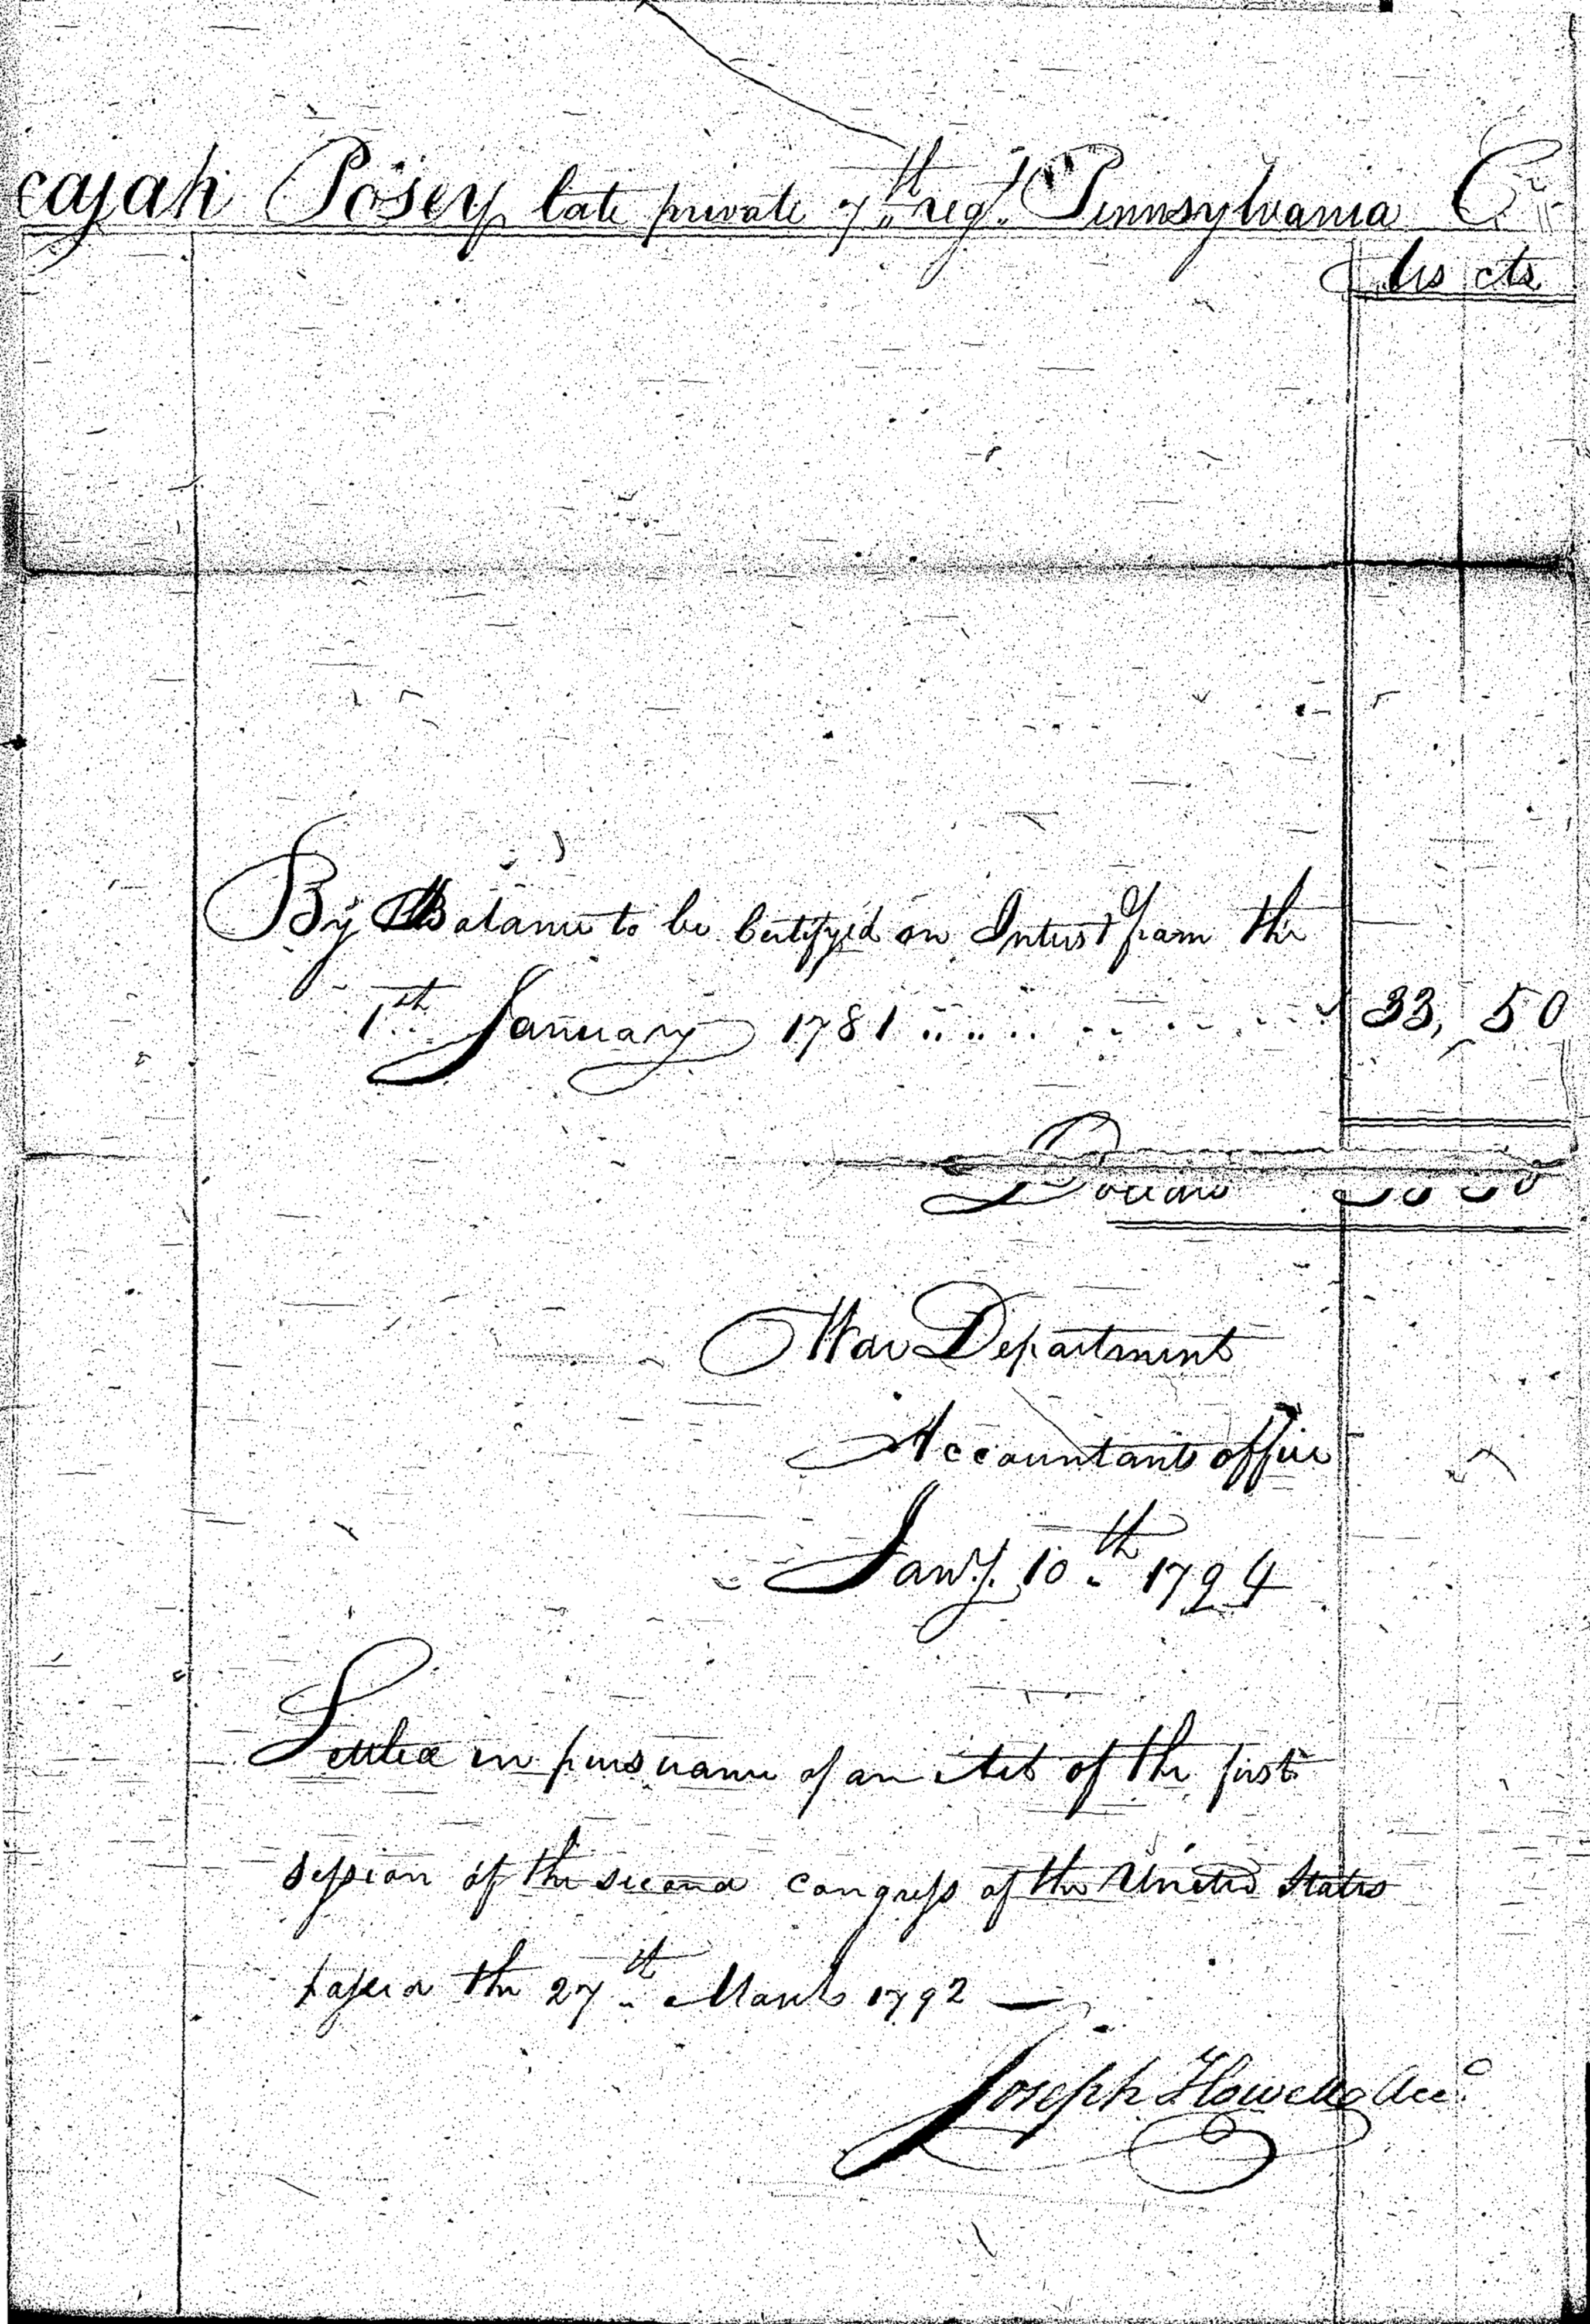 cajah Posey late private 7th regt. Pennsylvania C
Dls cts
By Balance to be Certifyed on Interest from the
1st January 1781 33, 50
Dollars
War Department
Accountants office
Jany. 10th 1794
Settled in pursuance of an Act of the first
session of the second congress of the United States
passed the 27th March 1792 —
Joseph Howell Acct